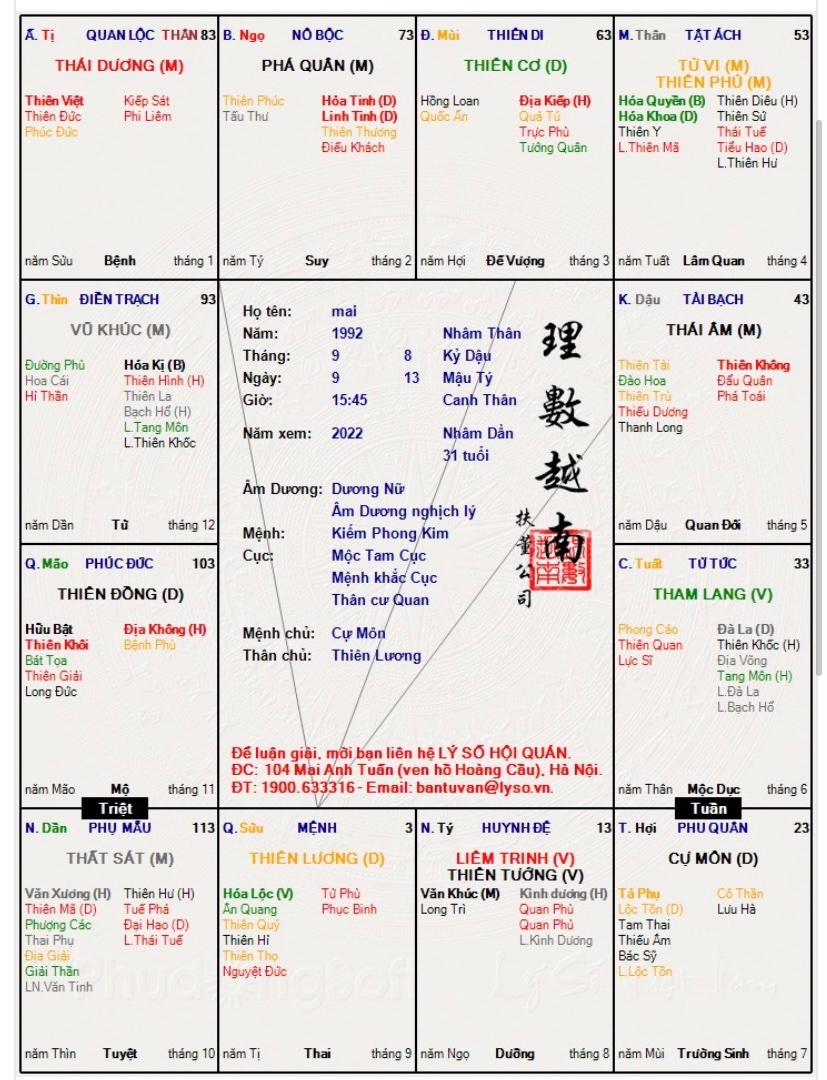 Ấ. Tị QUAN LỘC THÂN 83
THÁI DƯƠNG (M)
Thiên Việt Kiếp Sát
Thiên Đức Phi Liêm
Phúc Đức
năm Sửu Bệnh tháng 1
B. Ngọ NÔ BỘC 73
PHÁ QUÂN (M)
Thiên Phúc Hỏa Tinh (D)
Tấu Thư Linh Tinh (D)
Thiên Thương
Điếu Khách
năm Tý Suy tháng 2
Đ. Mùi THIÊN DI 63
THIÊN CƠ (D)
Hồng Loan Địa Kiếp (H)
Quốc Ấn Quả Tú
Trực Phù
Tướng Quân
năm Hợi Đế Vượng tháng 3
M. Thân TẬT ÁCH 53
TỬ VI (M)
THIÊN PHỦ (M)
Hóa Quyền (B) Thiên Diêu (H)
Hóa Khoa (D) Thiên Sứ
Thiên Y Thái Tuế
L.Thiên Mã Tiểu Hao (D)
L.Thiên Hư
năm Tuất Lâm Quan tháng 4
G. Thìn ĐIỀN TRẠCH 93
VŨ KHÚC (M)
Đường Phù Hóa Kị (B)
Hoa Cái Thiên Hình (H)
Hỉ Thần Thiên La
Bạch Hổ (H)
L.Tang Môn
L.Thiên Khốc
năm Dần Tử tháng 12
Họ tên: mai
Năm: 1992 Nhâm Thân
Tháng: 9 8 Kỷ Dậu
Ngày: 9 13 Mậu Tý
Giờ: 15:45 Canh Thân
Năm xem: 2022 Nhâm Dần
31 tuổi
Âm Dương: Dương Nữ
Âm Dương nghịch lý
Mệnh: Kiếm Phong Kim
Cục: Mộc Tam Cục
Mệnh khắc Cục
Thân cư Quan
Mệnh chủ: Cự Môn
Thân chủ: Thiên Lương
理數越南
扶董公司
Để luận giải, mời bạn liên hệ LÝ SỐ HỘI QUÁN.
ĐC: 104 Mai Anh Tuấn (ven hồ Hoàng Cầu), Hà Nội.
ĐT: 1900.633316 - Email: bantuvan@lyso.vn.
K. Dậu TÀI BẠCH 43
THÁI ÂM (M)
Thiên Tài Thiên Không
Đào Hoa Đẩu Quân
Thiên Trù Phá Toái
Thiếu Dương
Thanh Long
năm Dậu Quan Đới tháng 5
Q. Mão PHÚC ĐỨC 103
THIÊN ĐỒNG (D)
Hữu Bật Địa Không (H)
Thiên Khôi Bệnh Phù
Bát Tọa
Thiên Giải
Long Đức
năm Mão Mộ tháng 11
C. Tuất TỬ TỨC 33
THAM LANG (V)
Phong Cáo Đà La (D)
Thiên Quan Thiên Khốc (H)
Lực Sĩ Địa Võng
Tang Môn (H)
L.Đà La
L.Bạch Hổ
năm Thân Mộc Dục tháng 6
Triệt
Tuần
N. Dần PHỤ MẪU 113
THẤT SÁT (M)
Văn Xương (H) Thiên Hư (H)
Thiên Mã (D) Tuế Phá
Phượng Các Đại Hao (D)
Thai Phụ L.Thái Tuế
Địa Giải
Giải Thần
LN.Văn Tinh
năm Thìn Tuyệt tháng 10
Q. Sửu MỆNH 3
THIÊN LƯƠNG (D)
Hóa Lộc (V) Tử Phù
Ân Quang Phục Binh
Thiên Quý
Thiên Hỉ
Thiên Thọ
Nguyệt Đức
năm Tị Thai tháng 9
N. Tý HUYNH ĐỆ 13
LIÊM TRINH (V)
THIÊN TƯỚNG (V)
Văn Khúc (M) Kình dương (H)
Long Trì Quan Phù
Quan Phủ
L.Kình Dương
năm Ngọ Dưỡng tháng 8
T. Hợi PHU QUÂN 23
CỰ MÔN (D)
Tả Phụ Cô Thần
Lộc Tồn (D) Lưu Hà
Tam Thai
Thiếu Âm
Bác Sỹ
L.Lộc Tồn
năm Mùi Trường Sinh tháng 7